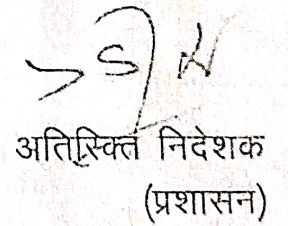 अतिरिक्त निदेशक
(प्रशासन)